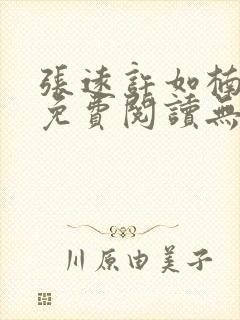 張遠許如楠
免費閱讀無
川原由美子